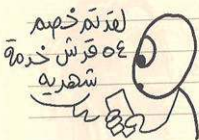 لقد تم خصم
٥٤ قرش خدمة
شهرية